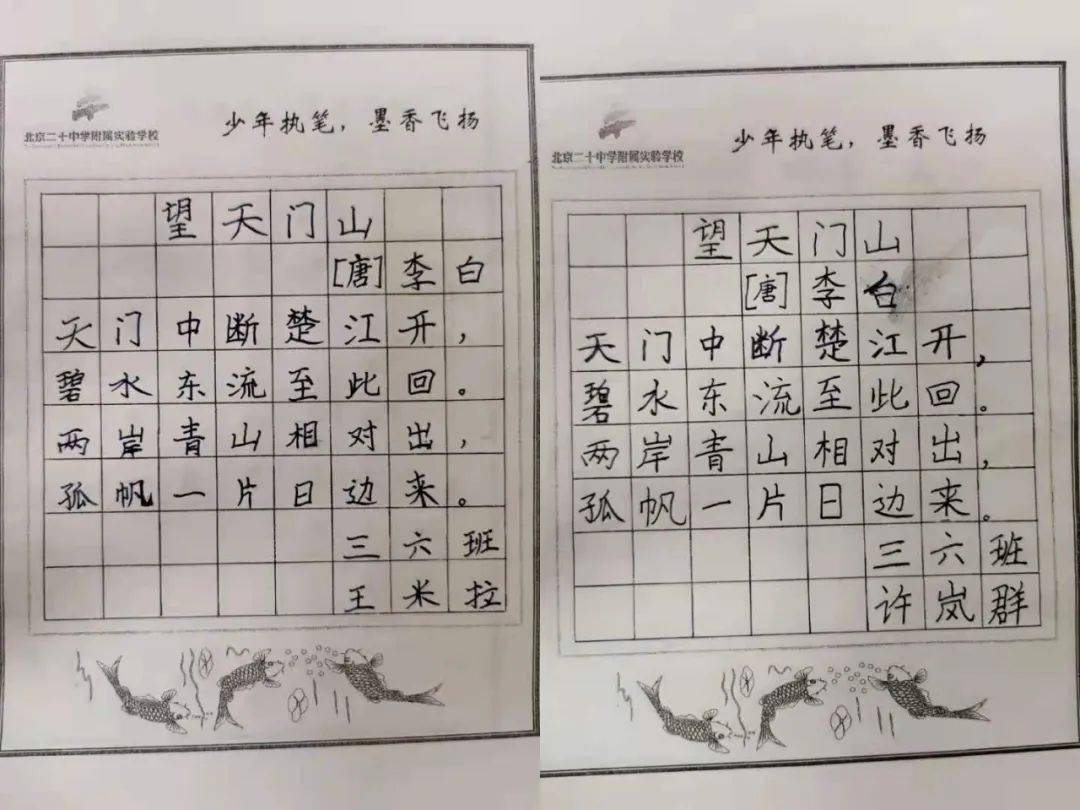 北京二十中学附属实验学校
少年执笔，墨香飞扬
望天门山
[唐]李白
天门中断楚江开，
碧水东流至此回。
两岸青山相对出，
孤帆一片日边来。
三六班
王米拉
北京二十中学附属实验学校
少年执笔，墨香飞扬
望天门山
[唐]李白
天门中断楚江开，
碧水东流至此回。
两岸青山相对出，
孤帆一片日边来。
三六班
许岚群